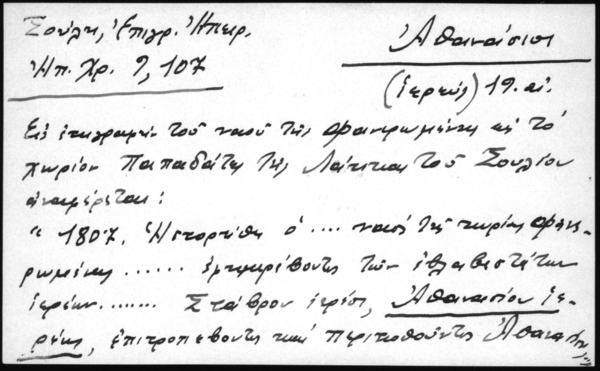 Σούλη, Ἐπιγρ. Ἠπειρ.
Ἠπ. Χρ. 9, 107
Ἀθανάσιος
(ἱερεύς) 19. αἰ.
Εἰς ἐπιγραφὴν τοῦ ναοῦ τῆς Φανερωμένης εἰς τὸ
χωρίον Παπαδάτες τῆς Λάκκας τοῦ Σουλίου
ἀναφέρεται:
" 1807. Ἠστορήθη ὁ .... ναὸς τῆς κυρίας Φανε-
ρωμένης ...... ἐφημερέβοντες τῶν ἐβλαβεστάτων
ἱερέων ....... Στάβρου ἱερέος, Ἀθανασίου ἱε-
ρέος, ἐπιτροπέβοντες καὶ περικοθοῦντες Ἀθανασίου